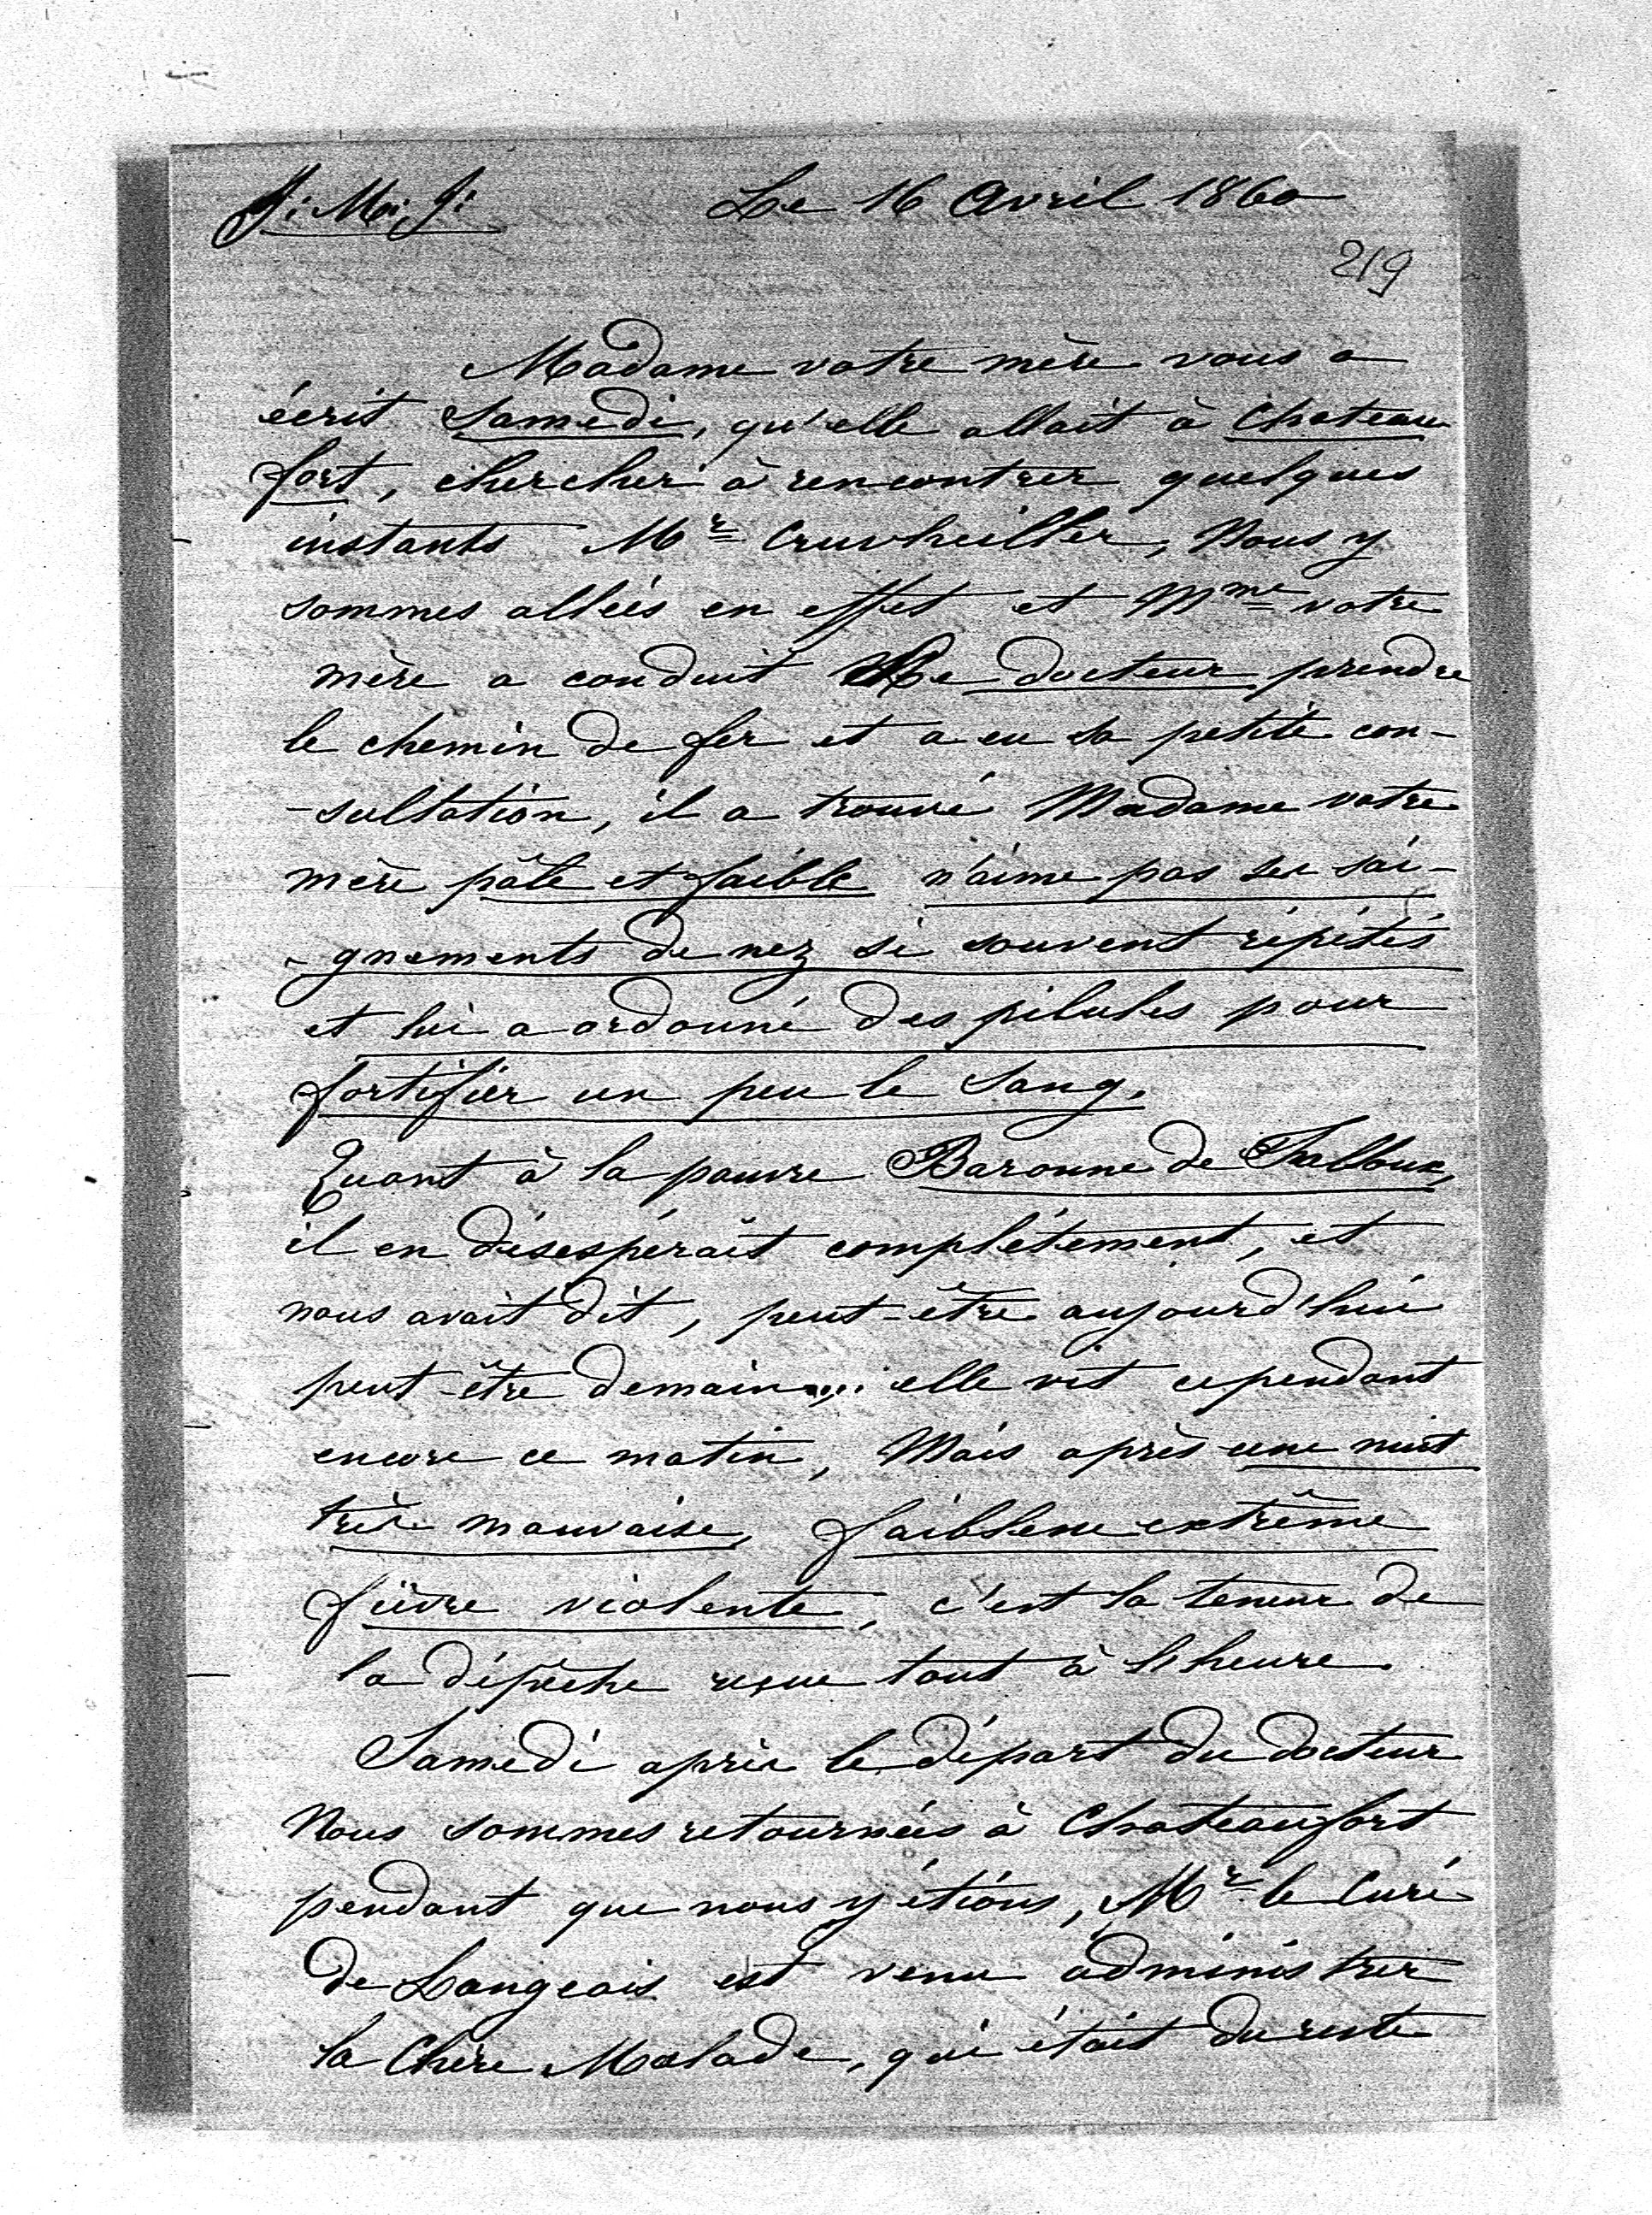 J. M. J. Le 16 Avril 1860
219
Madame votre mère vous a
écrit Samedi, qu'elle allait à Chateau
fort, chercher à rencontrer quelques
instants Mr Cruvheillier, Nous y
sommes allées en effet et Mme votre
mère a conduit Le docteur prendre
le chemin de fer et a eu sa petite con-
-sultation, il a trouvé Madame votre
mère pâle et faible n'aime pas ses sai-
-gnements de nez si souvent répétés
et lui a ordonné des pilules pour
fortifier un peu le sang.
Quant à la pauvre Baronne de
il en désespérait complètement, et
nous avait dit, peut-être aujourd'hui
peut-être demain.... elle vit cependant
encore ce matin, Mais après une nuit
très mauvaise, faiblesse extrême
fièvre violente, c'est la teneur de
la dépêche reçue tout à l'heure.
Samedi après le départ du docteur
Nous sommes retournées à Chateaufort
pendant que nous y étions, Mr le Curé
de Langeais est venu administrer
la Chère Malade, qui était du reste